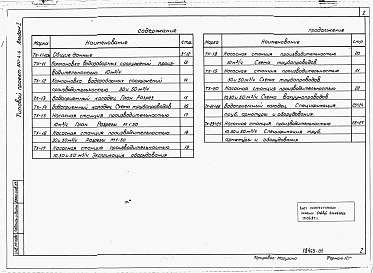 содержание
Марка Наименование Стр.
ТХ-1÷10 Общие данные 3-12
ТХ-11 Компоновка водозаборных сооружений произ-
водительностью 10 м³/ч 13
ТХ-12 Компоновка водозаборных сооружений
производительностью 30 и 50 м³/ч 14
ТХ-13 Водоприемный колодец План Разрез 15
ТХ-15 Водоприемный колодец Схема трубопроводов 16
ТХ-15 Насосная станция производительностью
10 м³/ч План Разрезы М1:50 17
ТХ-16 Насосная станция производительностью 18
30 и 50 м³/ч План Разрезы М1:50
ТХ-17 Насосная станция производительностью 19
10, 30 и 50 м³/ч Экспликация оборудования
продолжение
Марка Наименование Стр.
ТХ-18 Насосная станция производительностью 20
10 м³/ч Схема трубопроводов
ТХ-19 Насосная станция производительностью 21
30 и 50 м³/ч Схема трубопроводов
ТХ-20 Насосная станция производительностью 22
10, 30 и 50 м³/ч Схема вакуумпроводов
Водоприемный колодец Спецификация
труб, арматуры и оборудования.
Насосная станция производительностью
10, 30, 50 м³/ч Спецификация труб,
арматуры и оборудования
Типовой проект
Альбом I
2
18403-01
Копировал
Формат
2